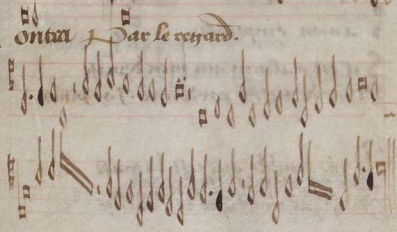 ontra Par le regard.